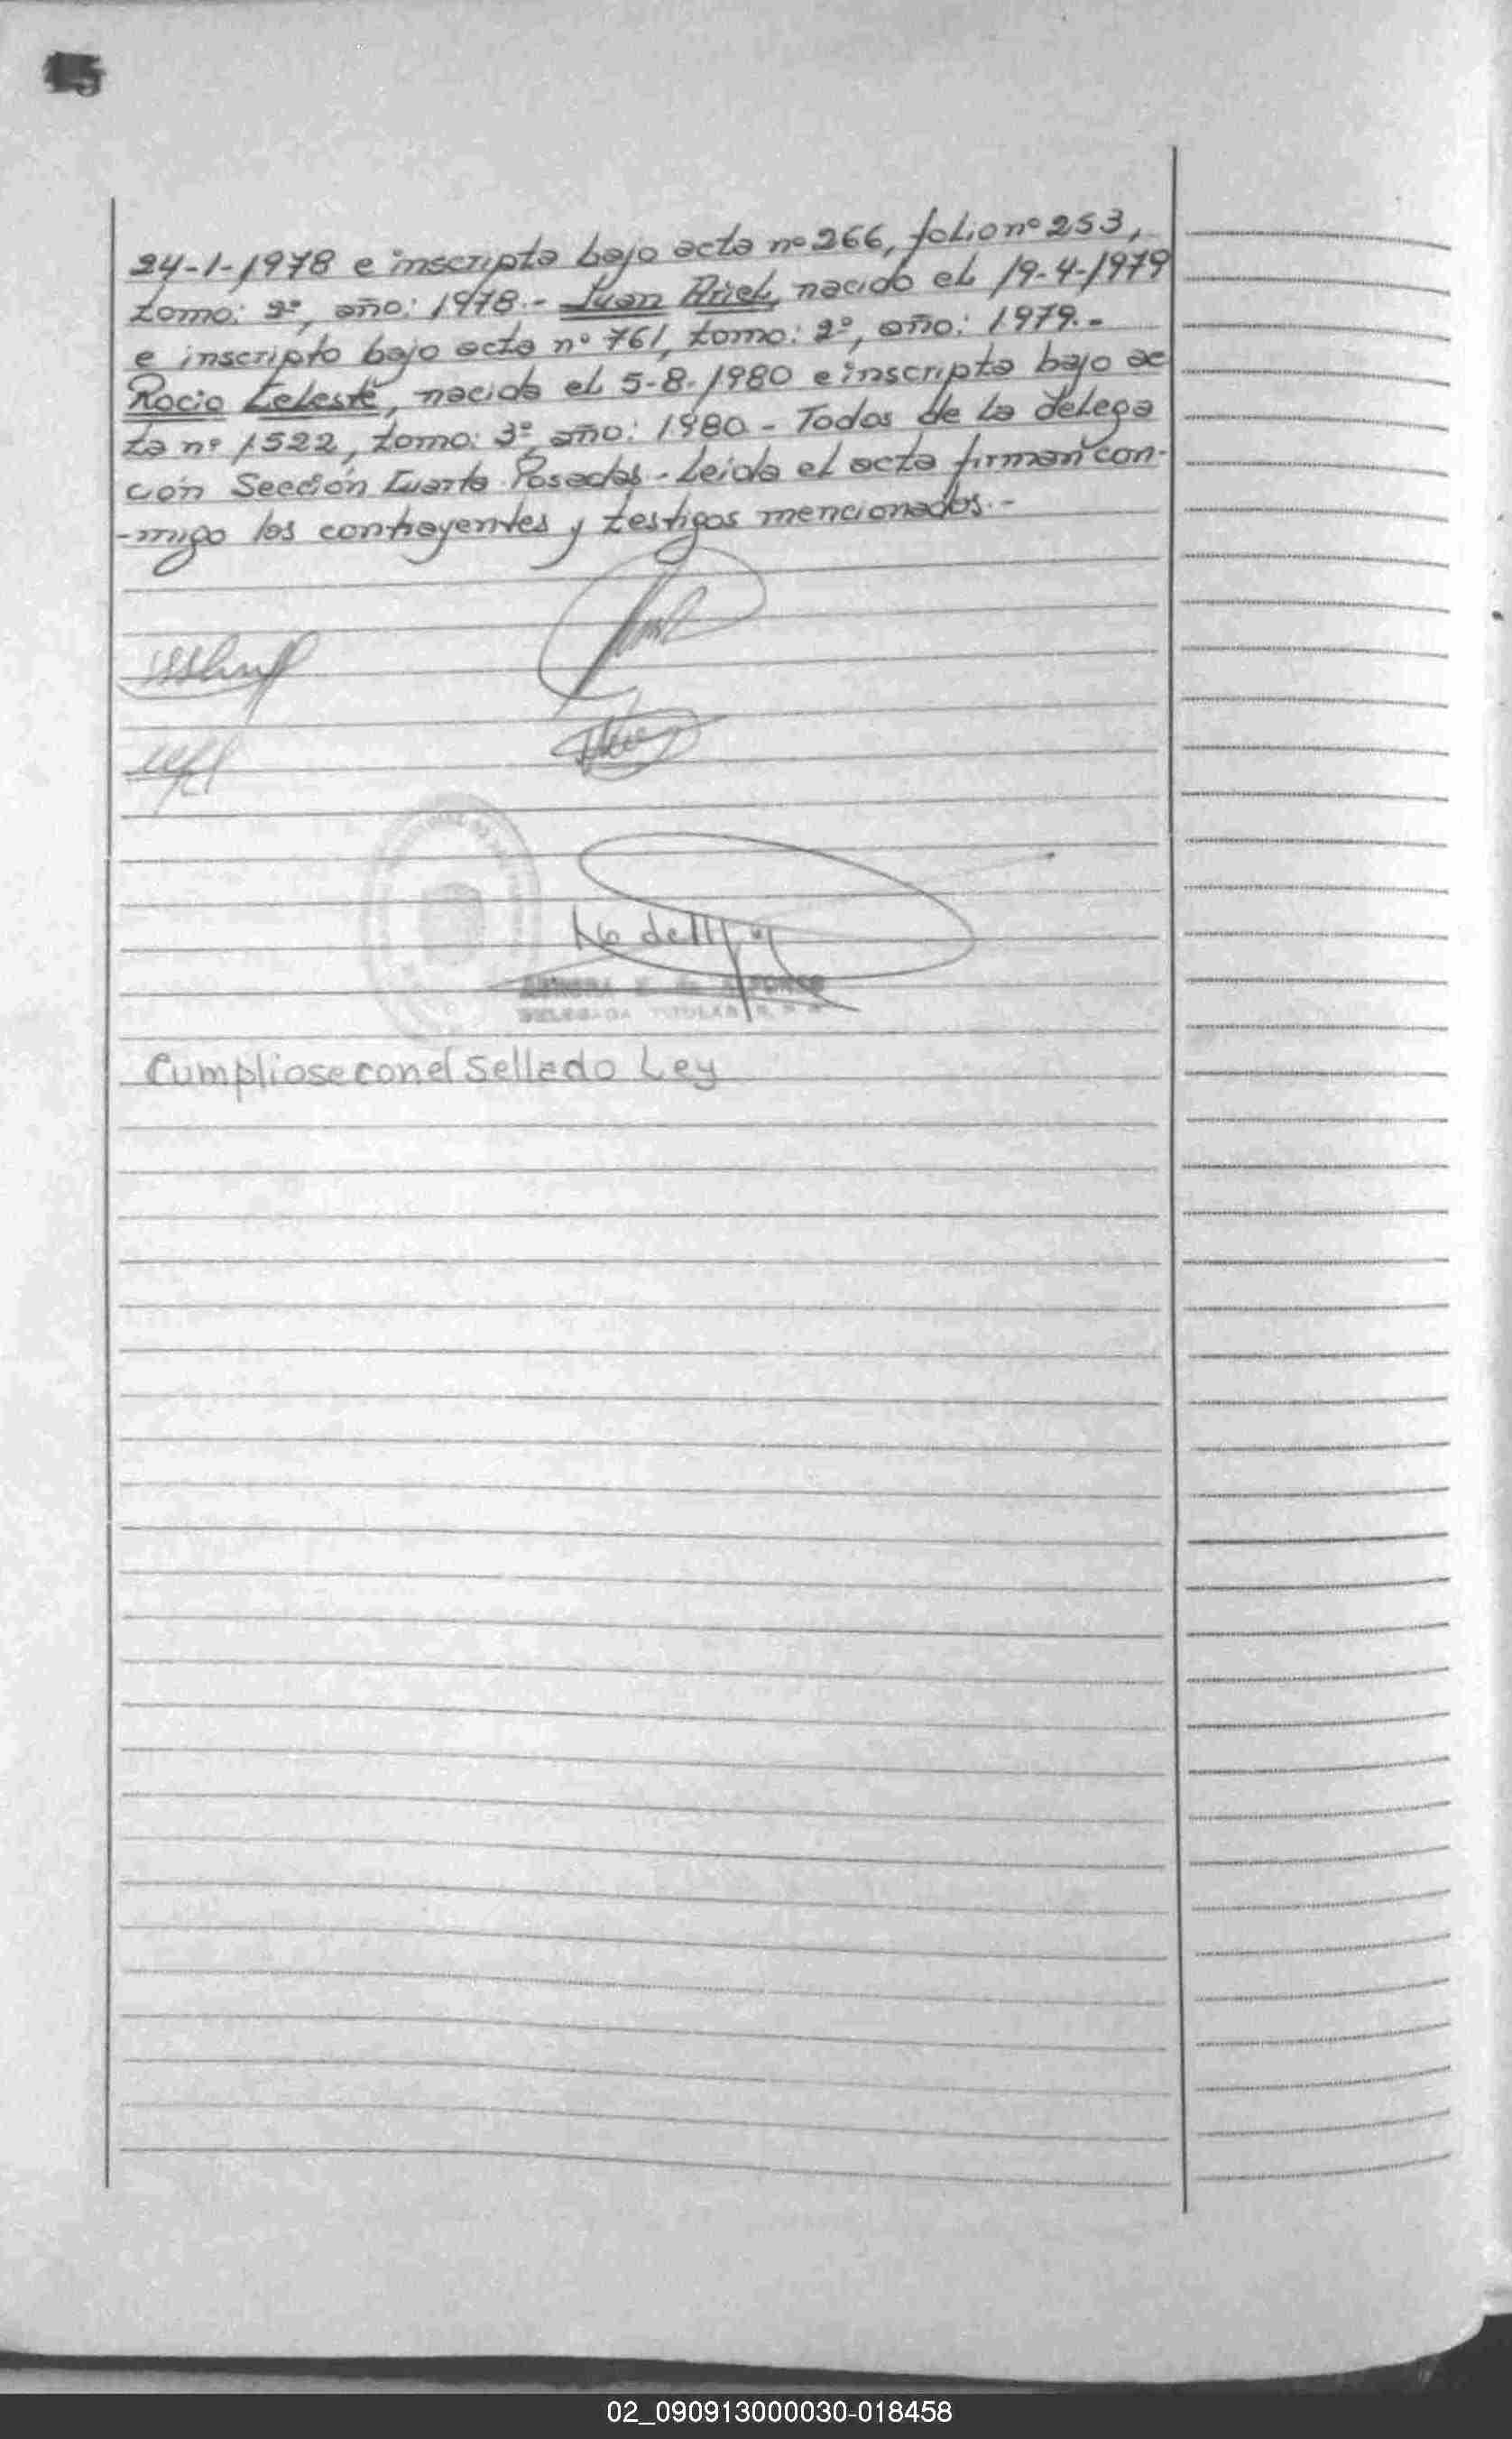 15
24-1-1978 e inscripta bajo acta nº 266, folio nº 253,
tomo: 2º, año: 1978.- Juan Ariel, nacido el 19-4-1979
e inscripto bajo acta nº 761, tomo: 2º, año: 1979.-
Rocio Celeste, nacida el 5-8-1980 e inscripta bajo ac
ta nº 1522, tomo: 3º, año: 1980.- Todos de la delega
ción Sección Cuarta Posadas.- Leida el acta firman con-
-migo los contrayentes y testigos mencionados.-
DELEGADA TITULAR
Cumpliose con el Sellado Ley
02_090913000030-018458